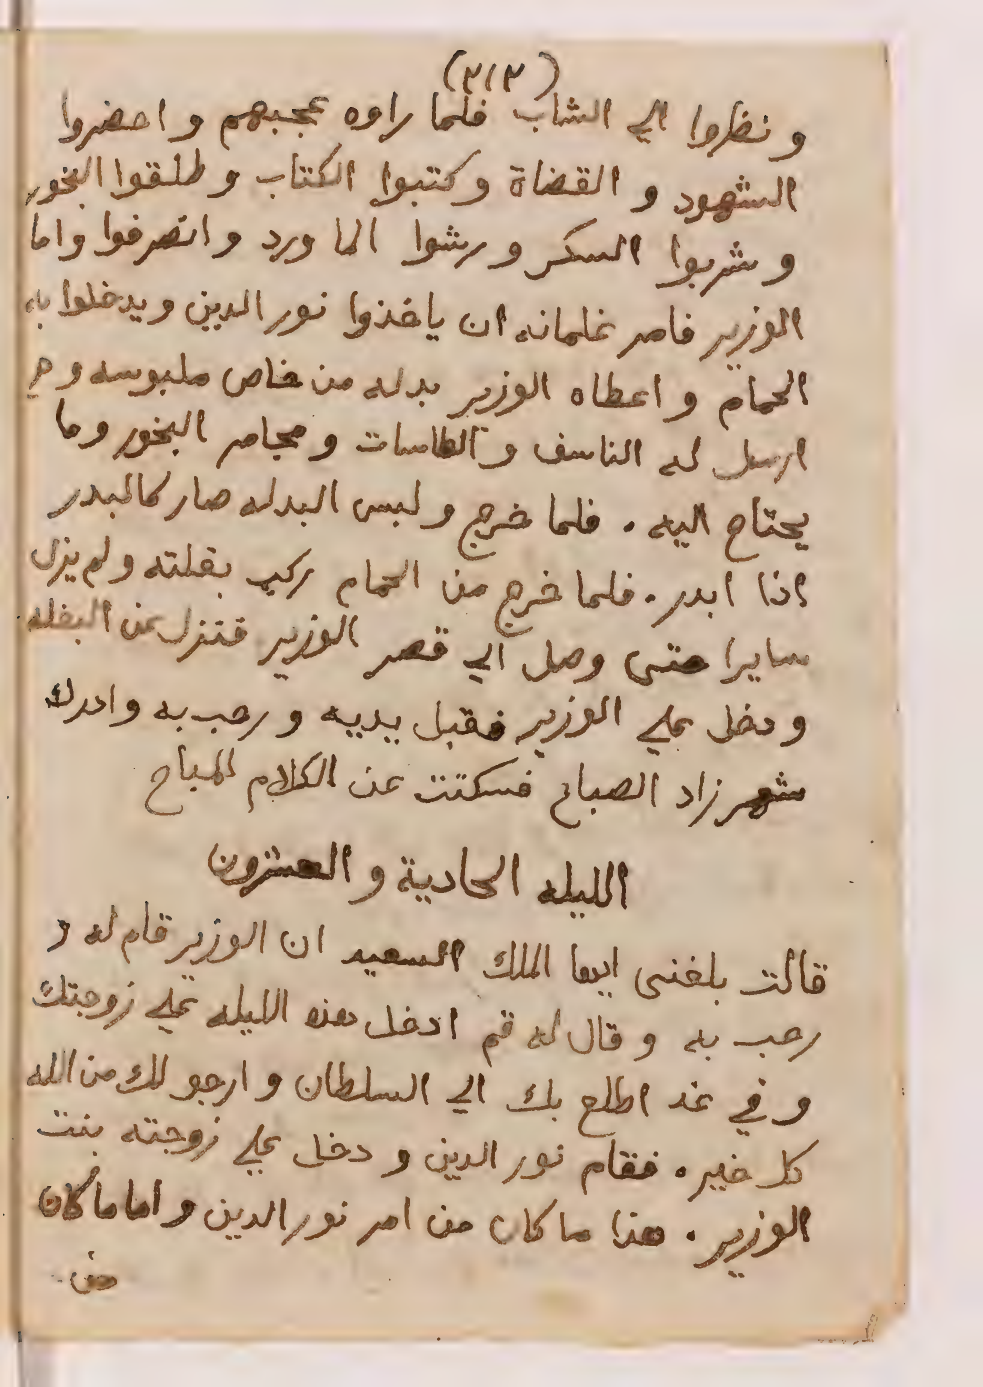 (٢١٢)
و نظروا الي الشاب فلما راوه عجبهم و احضروا
الشهود و القضاة و كتبوا الكتاب و طلقوا البخور
و شربوا السكر و رشوا الما ورد و انصرفوا واما
الوزير فامر غلمانه ان ياخذوا نور الدين ويدخلوا به
الحمام و اعطاه الوزير بدله من خاص ملبوسه و
ارسل له الناسف و الطاسات و مجامر البخور وما
يحتاج اليه . فلما خرج و لبس البدله صار كالبدر
اذا ابدر . فلما خرج من الحمام ركب بغلته ولم يزل
سايرا حتى وصل الي قصر الوزير فنزل عن البغله
و دخل علي الوزير فقبل يديه و رحب به وادرك
شهرزاد الصباح فسكتت عن الكلام المباح
الليله الحادية و العشرون
قالت بلغنى ايها الملك السعيد ان الوزير قام له و
رحب به و قال له قم ادخل هذه الليله علي زوجتك
و في غد اطلع بك الي السلطان و ارجو لك من الله
كل خير . فقام نور الدين و دخل علي زوجته بنت
الوزير . هذا ما كان من امر نور الدين و اما ما كان
من